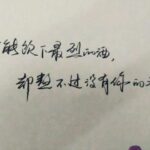 能饮下最烈的酒，
却熬不过没有你的